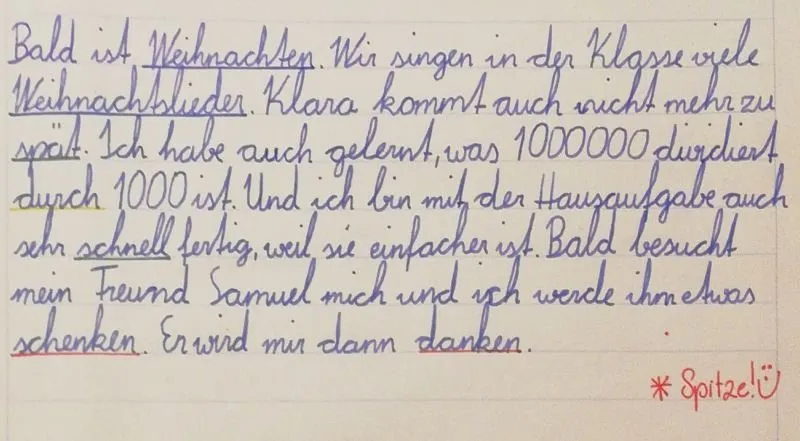 Bald ist Weihnachten. Wir singen in der Klasse viele
Weihnachtslieder. Klara kommt auch nicht mehr zu
spät. Ich habe auch gelernt, was 1000000 dividiert
durch 1000 ist. Und ich bin mit der Hausaufgabe auch
sehr schnell fertig, weil sie einfacher ist. Bald besucht
mein Freund Samuel mich und ich werde ihm etwas
schenken. Er wird mir dann danken.
* Spitze!